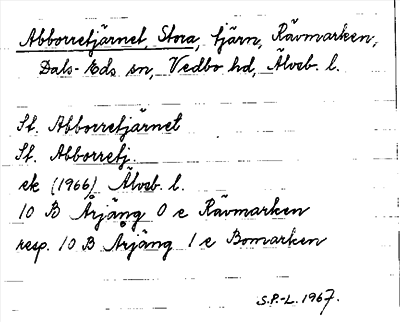 Abborretjärnet, Stora, tjärn, Rävmarken,
Dals-Eds sn, Vedbo hd, Älvsb. l.
St. Abborretjärnet
St. Abborretj.
ek (1966) Älvsb. l.
10 B Årjäng 0 e Rävmarken
resp. 10 B Årjäng 1 e Bomarken
S.P.-L. 1967.